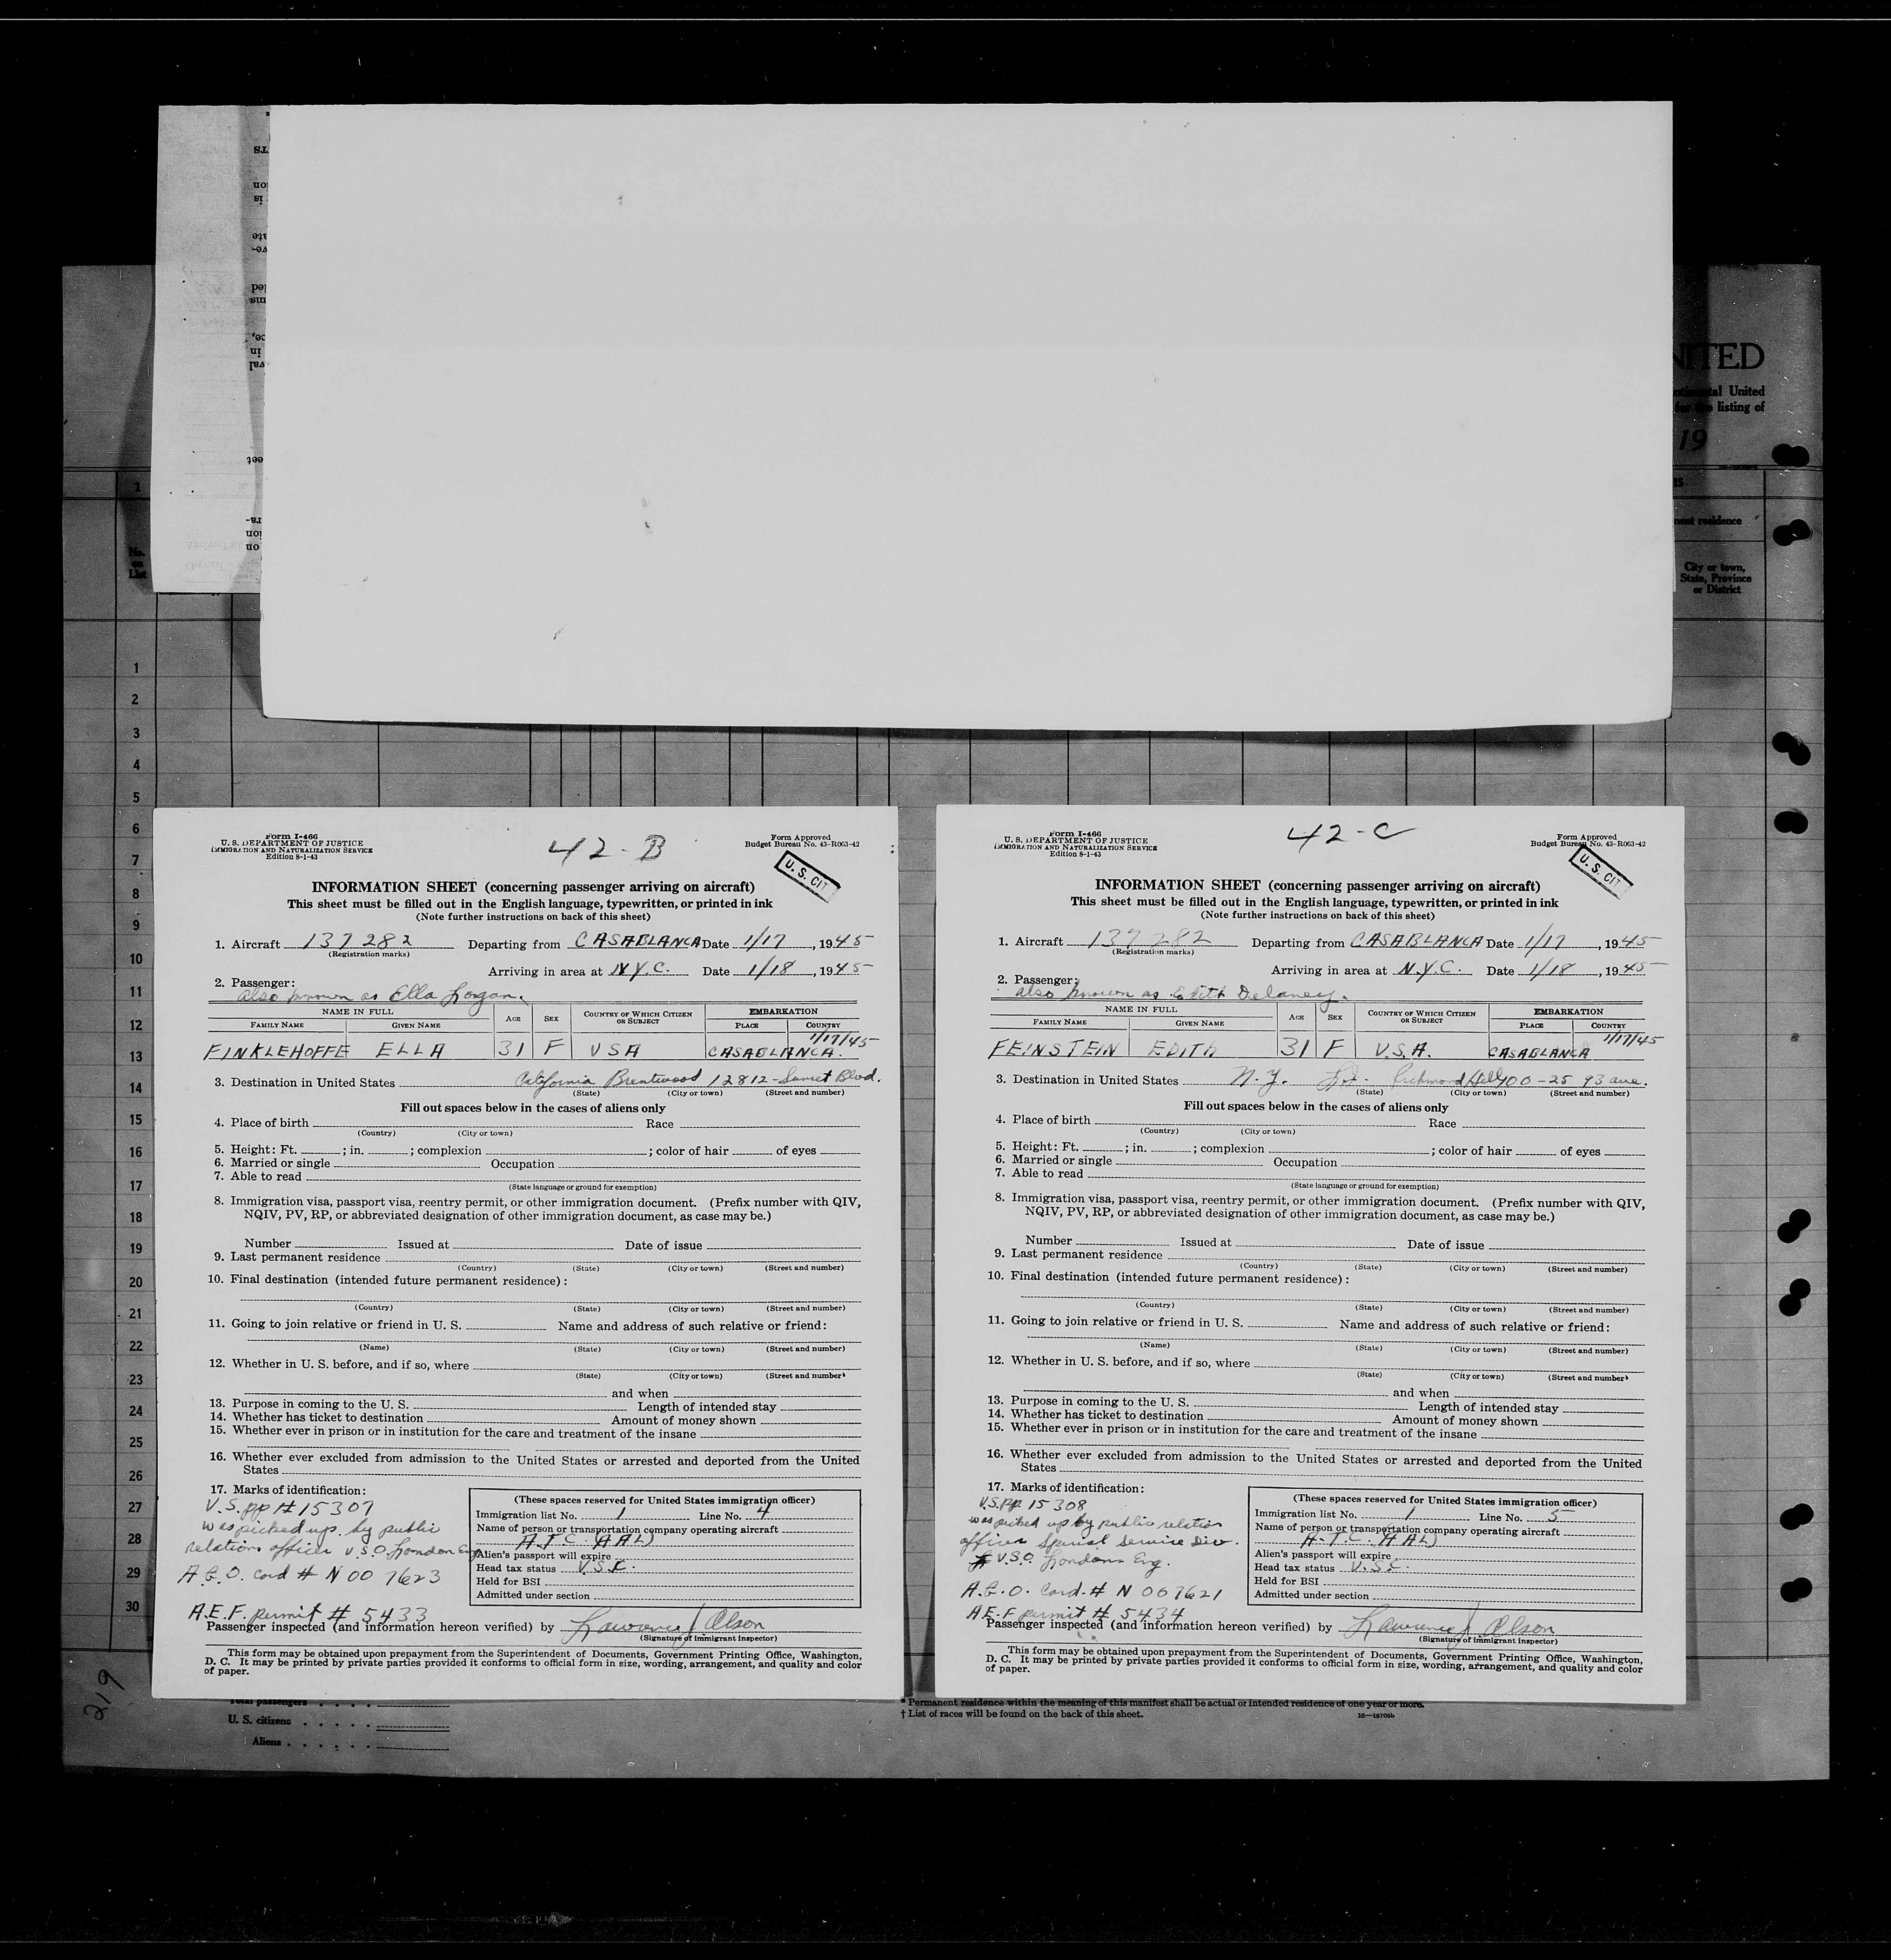 NITED
al United
listing of
19
nent residence
City or town,
State, Province
or District
No.
List
1
1
2
3
4
5
6
7
8
9
10
11
12
13
14
15
16
17
18
19
20
21
22
23
24
25
26
27
28
29
30
Form I-466
U. S. DEPARTMENT OF JUSTICE
IMMIGRATION AND NATURALIZATION SERVICE
Edition 8-1-43
42-B
Form Approved
Budget Bureau No. 43-R063-42
U. S. CIT
INFORMATION SHEET (concerning passenger arriving on aircraft)
This sheet must be filled out in the English language, typewritten, or printed in ink
(Note further instructions on back of this sheet)
1. Aircraft 137282 Departing from CASABLANCA Date 1/17, 1945
(Registration marks)
Arriving in area at N.Y.C. Date 1/18, 1945
2. Passenger:
also known as Ella Logan.
NAME IN FULL AGE SEX COUNTRY OF WHICH CITIZEN OR SUBJECT EMBARKATION
FAMILY NAME GIVEN NAME PLACE COUNTRY
1/17/45
FINKLEHOFFE ELLA 31 F USA CASABLANCA.
3. Destination in United States California Brentwood 12812-Sunset Blvd.
(State) (City or town) (Street and number)
Fill out spaces below in the cases of aliens only
4. Place of birth Race
(Country) (City or town)
5. Height: Ft. ; in. ; complexion ; color of hair of eyes
6. Married or single Occupation
7. Able to read
(State language or ground for exemption)
8. Immigration visa, passport visa, reentry permit, or other immigration document. (Prefix number with QIV,
NQIV, PV, RP, or abbreviated designation of other immigration document, as case may be.)
Number Issued at Date of issue
9. Last permanent residence
(Country) (State) (City or town) (Street and number)
10. Final destination (intended future permanent residence):
(Country) (State) (City or town) (Street and number)
11. Going to join relative or friend in U. S. Name and address of such relative or friend:
(Name) (State) (City or town) (Street and number)
12. Whether in U. S. before, and if so, where
(State) (City or town) (Street and number)
and when
13. Purpose in coming to the U. S. Length of intended stay
14. Whether has ticket to destination Amount of money shown
15. Whether ever in prison or in institution for the care and treatment of the insane
16. Whether ever excluded from admission to the United States or arrested and deported from the United
States
17. Marks of identification:
U.S. pp # 15307
was picked up by public
relations officer U.S.O. London Eng.
A.G.O. card # N 00 7623
A.E.F. permit # 5433
(These spaces reserved for United States immigration officer)
Immigration list No. 1 Line No. 4
Name of person or transportation company operating aircraft
A.T.C. (AAL)
Alien's passport will expire
Head tax status U.S.C.
Held for BSI
Admitted under section
Passenger inspected (and information hereon verified) by Lawrence J Olson
(Signature of immigrant inspector)
This form may be obtained upon prepayment from the Superintendent of Documents, Government Printing Office, Washington,
D. C. It may be printed by private parties provided it conforms to official form in size, wording, arrangement, and quality and color
of paper.
Form I-466
U. S. DEPARTMENT OF JUSTICE
IMMIGRATION AND NATURALIZATION SERVICE
Edition 8-1-43
42-C
Form Approved
Budget Bureau No. 43-R063-42
U. S. CIT
INFORMATION SHEET (concerning passenger arriving on aircraft)
This sheet must be filled out in the English language, typewritten, or printed in ink
(Note further instructions on back of this sheet)
1. Aircraft 137282 Departing from CASABLANCA Date 1/17, 1945
(Registration marks)
Arriving in area at N.Y.C. Date 1/18, 1945
2. Passenger:
also known as Edith Delaney.
NAME IN FULL AGE SEX COUNTRY OF WHICH CITIZEN OR SUBJECT EMBARKATION
FAMILY NAME GIVEN NAME PLACE COUNTRY
1/17/45
FEINSTEIN EDITH 31 F U.S.A. CASABLANCA
3. Destination in United States N.Y. L.I. Richmond Hill 100-25 93 ave.
(State) (City or town) (Street and number)
Fill out spaces below in the cases of aliens only
4. Place of birth Race
(Country) (City or town)
5. Height: Ft. ; in. ; complexion ; color of hair of eyes
6. Married or single Occupation
7. Able to read
(State language or ground for exemption)
8. Immigration visa, passport visa, reentry permit, or other immigration document. (Prefix number with QIV,
NQIV, PV, RP, or abbreviated designation of other immigration document, as case may be.)
Number Issued at Date of issue
9. Last permanent residence
(Country) (State) (City or town) (Street and number)
10. Final destination (intended future permanent residence):
(Country) (State) (City or town) (Street and number)
11. Going to join relative or friend in U. S. Name and address of such relative or friend:
(Name) (State) (City or town) (Street and number)
12. Whether in U. S. before, and if so, where
(State) (City or town) (Street and number)
and when
13. Purpose in coming to the U. S. Length of intended stay
14. Whether has ticket to destination Amount of money shown
15. Whether ever in prison or in institution for the care and treatment of the insane
16. Whether ever excluded from admission to the United States or arrested and deported from the United
States
17. Marks of identification:
U.S. pp. 15308
was picked up by public relation
officer Special Service Div.
U.S.O. London Eng.
A.G.O. Card # N 007621
A.E.F permit # 5434
(These spaces reserved for United States immigration officer)
Immigration list No. 1 Line No. 5
Name of person or transportation company operating aircraft
A.T.C. (AAL)
Alien's passport will expire
Head tax status U.S.C.
Held for BSI
Admitted under section
Passenger inspected (and information hereon verified) by Lawrence J Olson
(Signature of immigrant inspector)
This form may be obtained upon prepayment from the Superintendent of Documents, Government Printing Office, Washington,
D. C. It may be printed by private parties provided it conforms to official form in size, wording, arrangement, and quality and color
of paper.
219
Total passengers
U. S. citizens
Aliens
* Permanent residence within the meaning of this manifest shall be actual or intended residence of one year or more.
† List of races will be found on the back of this sheet.
16—18709b